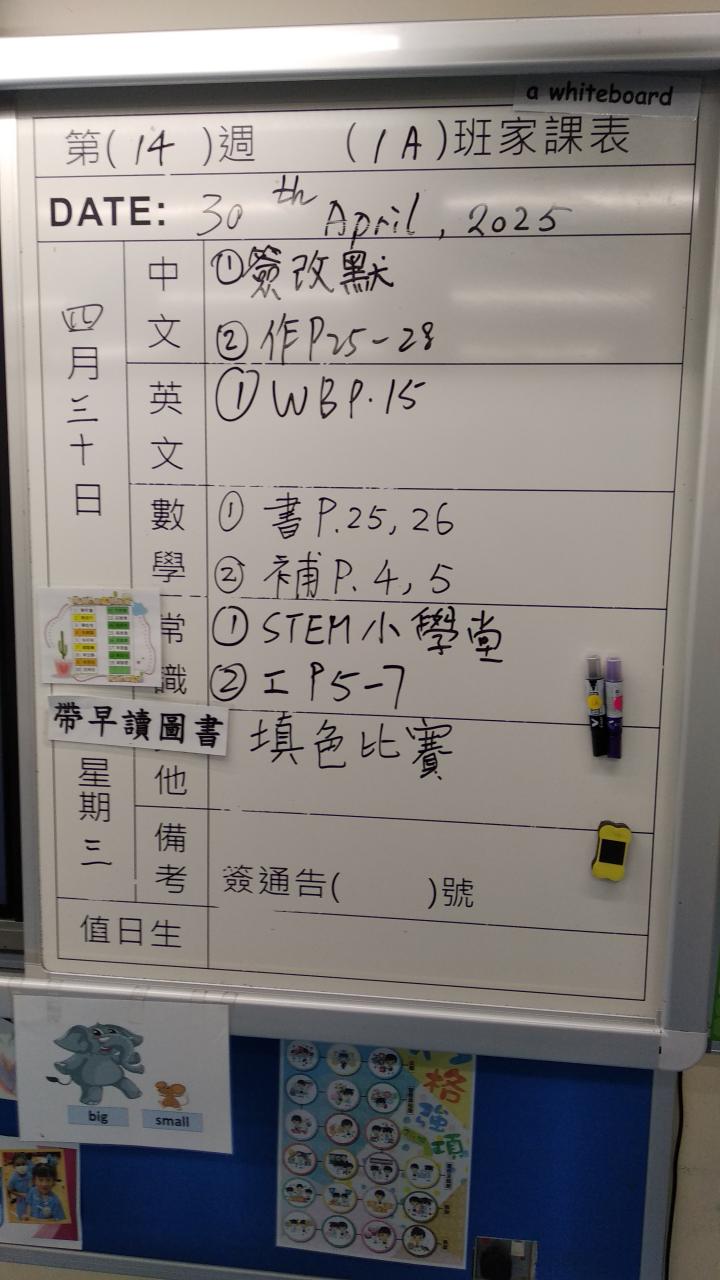 a whiteboard
第( 14 )週 (1A)班家課表
DATE: 30th April, 2025
四月三十日
星期三
中文
①簽改默
②作P25-28
英文
①WBP.15
數學
①書P.25,26
②補P.4,5
常識
①STEM小學堂
②工P5-7
帶早讀圖書
他
填色比賽
備考
簽通告( )號
值日生
big
small
格
強
項